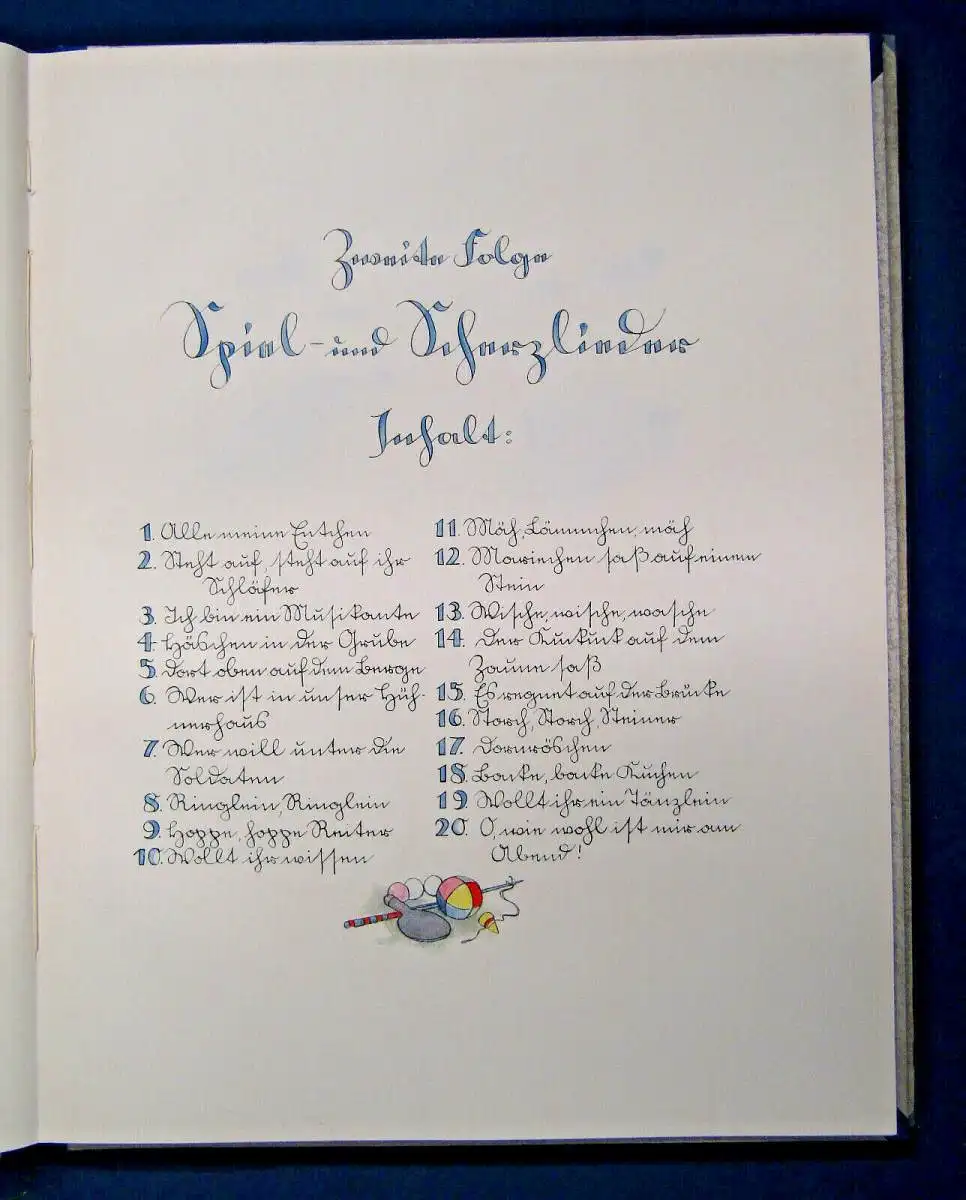 Zweite Folge
Spiel- und Scherzlieder
Inhalt:
1. Alle meine Entchen
2. Steht auf, steht auf ihr
Schläfer
3. Ich bin ein Musikante
4. Häschen in der Grube
5. Dort oben auf dem Berge
6. Wer ist in unser Hüh-
nerhaus
7. Wer will unter die
Soldaten
8. Ringlein, Ringlein
9. Hoppe, hoppe Reiter
10. Wollt ihr wissen
11. Mäh, Lämmchen, mäh
12. Mariechen saß auf einem
Stein
13. Wische, wische, wasche
14. Der Kuckuck auf dem
Zaune saß
15. Es regnet auf der Brücke
16. Storch, Storch, Steiner
17. Dornröschen
18. Backe, backe Kuchen
19. Wollt ihr ein Tänzlein
20. O, wie wohl ist mir am
Abend!